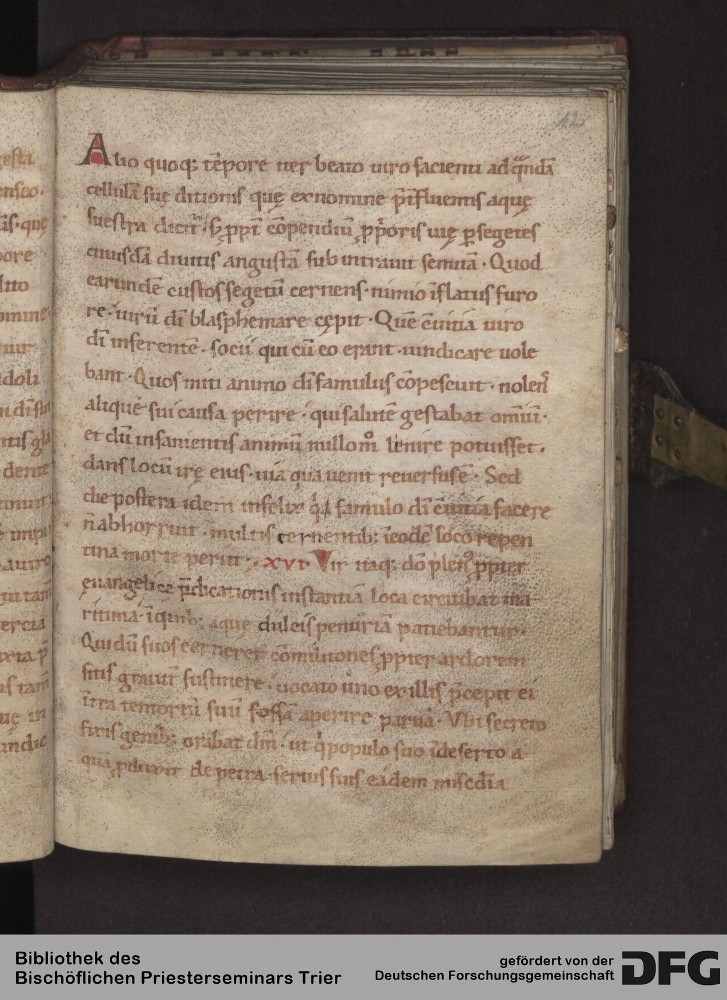 42
Alio quoq; tēpore uer beato uiro facienti ad quandā
cellulā suę ditionis quę ex nomine p̄terfluentis aquę
suestra dicitᷣ. & ꝓpt̄ cōpendiū ꝓp̄oris uię ꝑ segetes
cuiusdā diuitis angustā subintrauit semitā. Quod
earundē custos segetū cernens. nimio īflatus furo
re. uirū dī blasphemare cępit. Quē cū iniā uiro
dī inferentē. socii qui cū eo erant. uindicare uole
bant. Quos miti animo dī famulus cōpescuit. nolens
aliquē sui causa perire. qui salutē gestabat omniū.
et dū insanientis animū nullom̊ lenire potuisset.
dans locū irę eius. uia qua uenit reuersus ē. Sed
die postera idem infelix qͥa famulo dī cū iniā facere
n̄ abhorruit. multis cernentib; ī eodē loco repen
tina morte periit. .xvi. Vir itaq; dō plen⁹ ꝓpter
euangelice p̄dicationis instantiā loca circuibat ma
ritima. ī quib; aque dulcis penuriā patiebantur.
Qui dū suos cerneret cōmilitones ꝓpter ardorem
sitis grauit̄ sustinere. uocato uno ex illis p̄cepit ei
īt̄a temtoriū suū fossā aperire paruā. Vbi secreto
fixis genib; orabat dn̄m. ut qͥ populo suo ī deserto a
quā ꝓduxit de petra. seruis suis eadem misc̄dia
Bibliothek des
Bischöflichen Priesterseminars Trier
gefördert von der
Deutschen Forschungsgemeinschaft
DFG